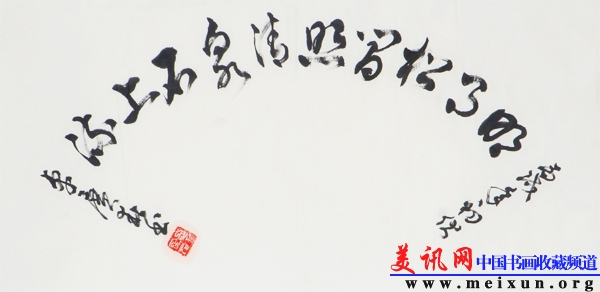 明月松间照清泉石上流
美讯网 中国书画收藏频道
www.meixun.org